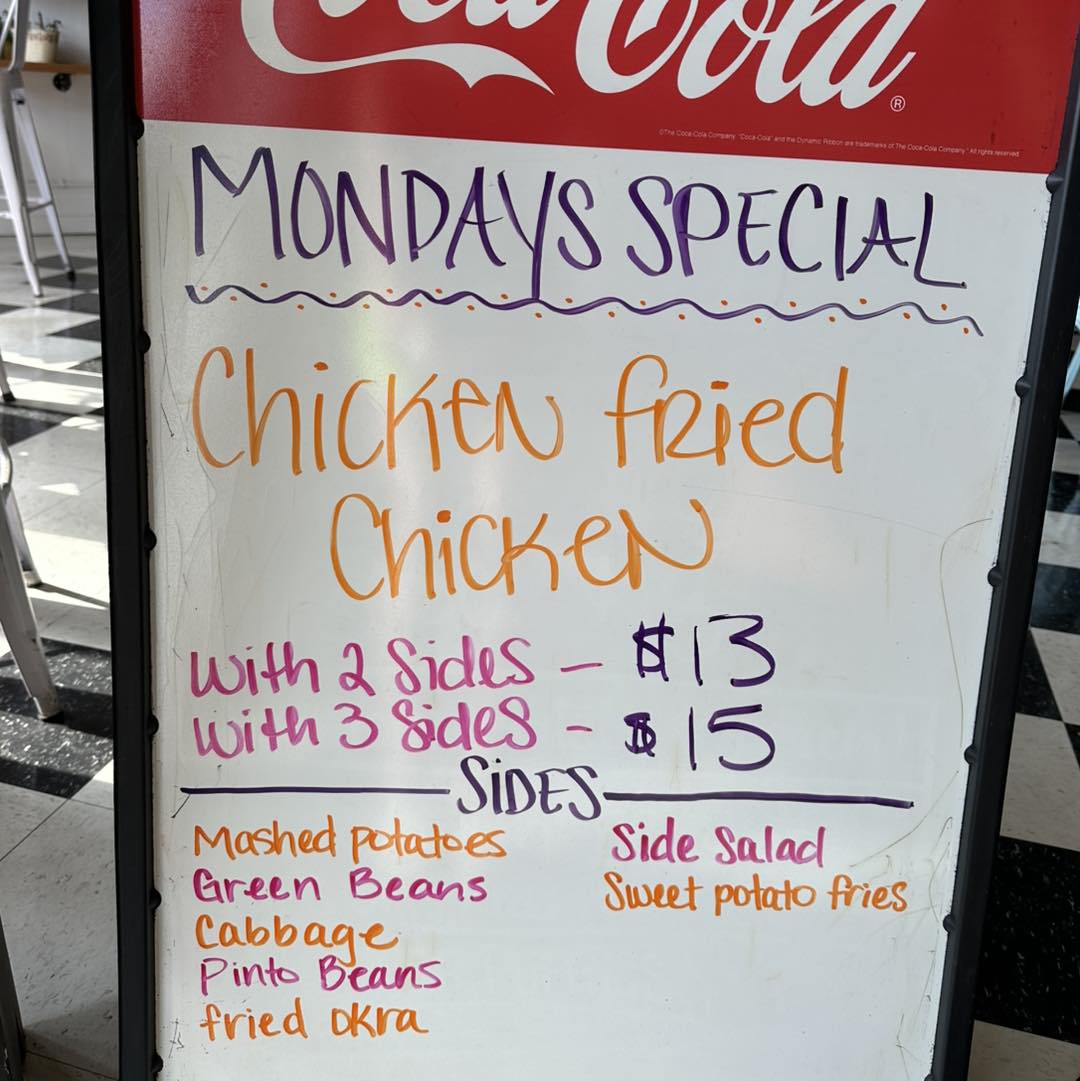 Coca-Cola
®
©The Coca-Cola Company. "Coca-Cola" and the Dynamic Ribbon are trademarks of The Coca-Cola Company. All rights reserved.
MONDAYS SPECIAL
Chicken fried
Chicken
with 2 Sides - $13
with 3 Sides - $15
SiDES
Mashed potatoes
Green Beans
Cabbage
Pinto Beans
fried okra
Side Salad
Sweet potato fries